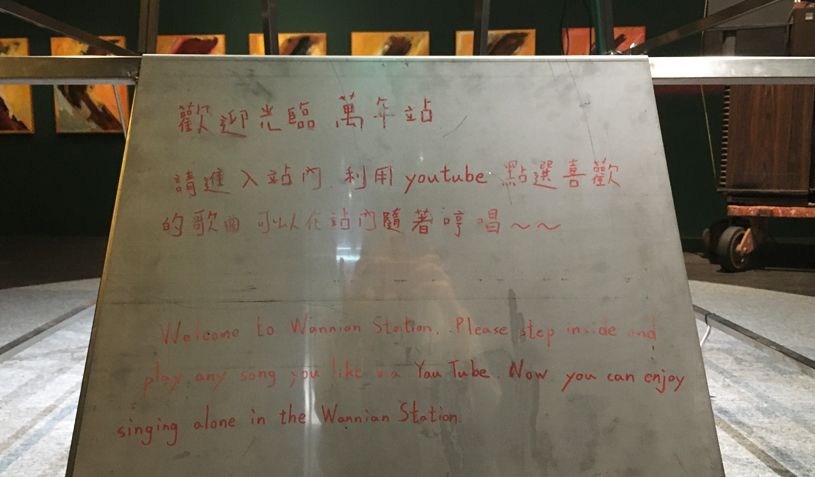 歡迎光臨 萬年站
請進入站內 利用youtube 點選喜歡
的歌曲可以在站內隨著哼唱～～
Welcome to Wannian Station. Please step inside and
play any song you like via YouTube. Now you can enjoy
singing alone in the Wannian Station.